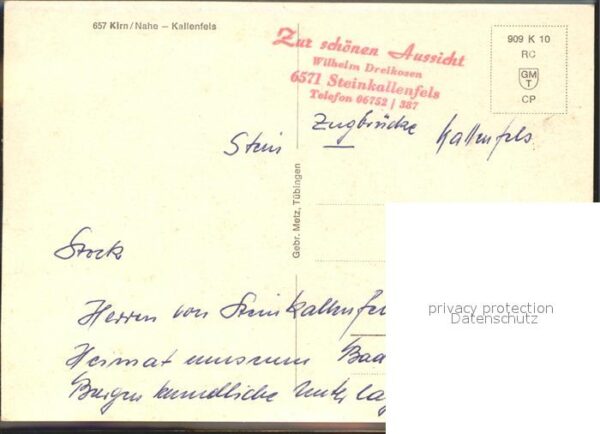 657 Kirn/Nahe – Kallenfels
Zur schönen Aussicht
Wilhelm Dreikosen
6571 Steinkallenfels
Telefon 06752 / 387
909 K 10
RC
GM
T
CP
Stein Zugbrücke Kallenfels
Gebr. Metz, Tübingen
Stock
Herren von Steinkallenfel
Heimat museum Baa
Burgen kundliche Unterlag
privacy protection
Datenschutz